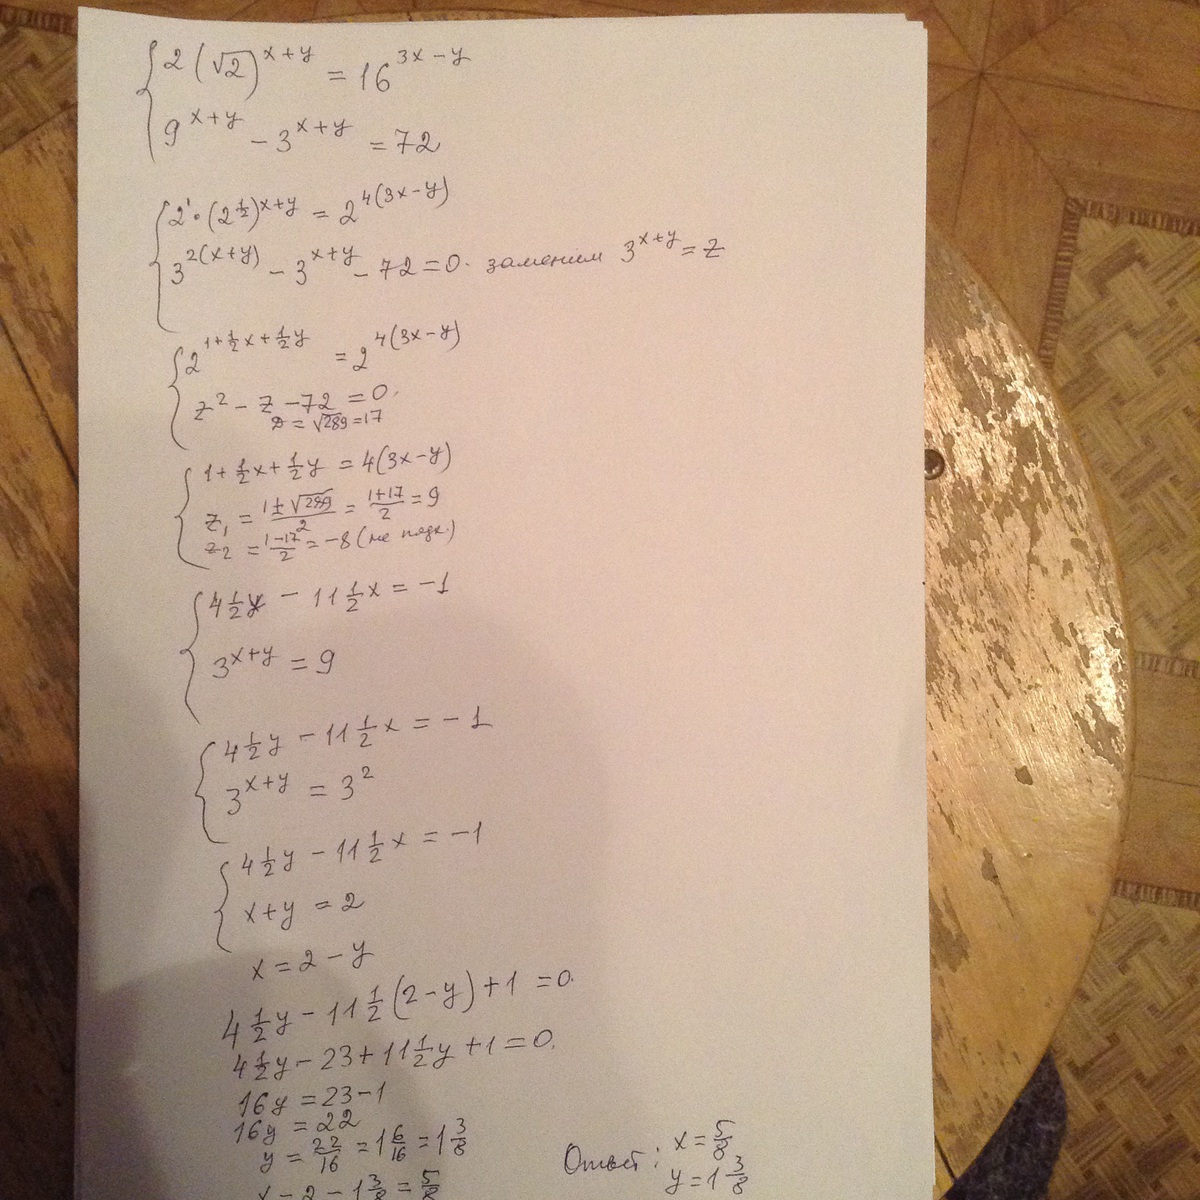 2(√2)^(x+y) = 16^(3x-y)
9^(x+y) - 3^(x+y) = 72
2^1 · (2^(1/2))^(x+y) = 2^(4(3x-y))
3^(2(x+y)) - 3^(x+y) - 72 = 0. заменим 3^(x+y) = z
2^(1+1/2x+1/2y) = 2^(4(3x-y))
z^2 - z - 72 = 0.
D = √289 = 17
1 + 1/2x + 1/2y = 4(3x-y)
z₁ = (1±√289)/2 = (1+17)/2 = 9
z₂ = (1-17)/2 = -8 (не подх.)
4 1/2y - 11 1/2x = -1
3^(x+y) = 9
4 1/2y - 11 1/2x = -1
3^(x+y) = 3^2
4 1/2y - 11 1/2x = -1
x+y = 2
x = 2 - y
4 1/2y - 11 1/2(2-y) + 1 = 0.
4 1/2y - 23 + 11 1/2y + 1 = 0.
16y = 23 - 1
16y = 22
y = 22/16 = 1 6/16 = 1 3/8
x = 2 - 1 3/8 = 5/8
Ответ: x = 5/8
y = 1 3/8